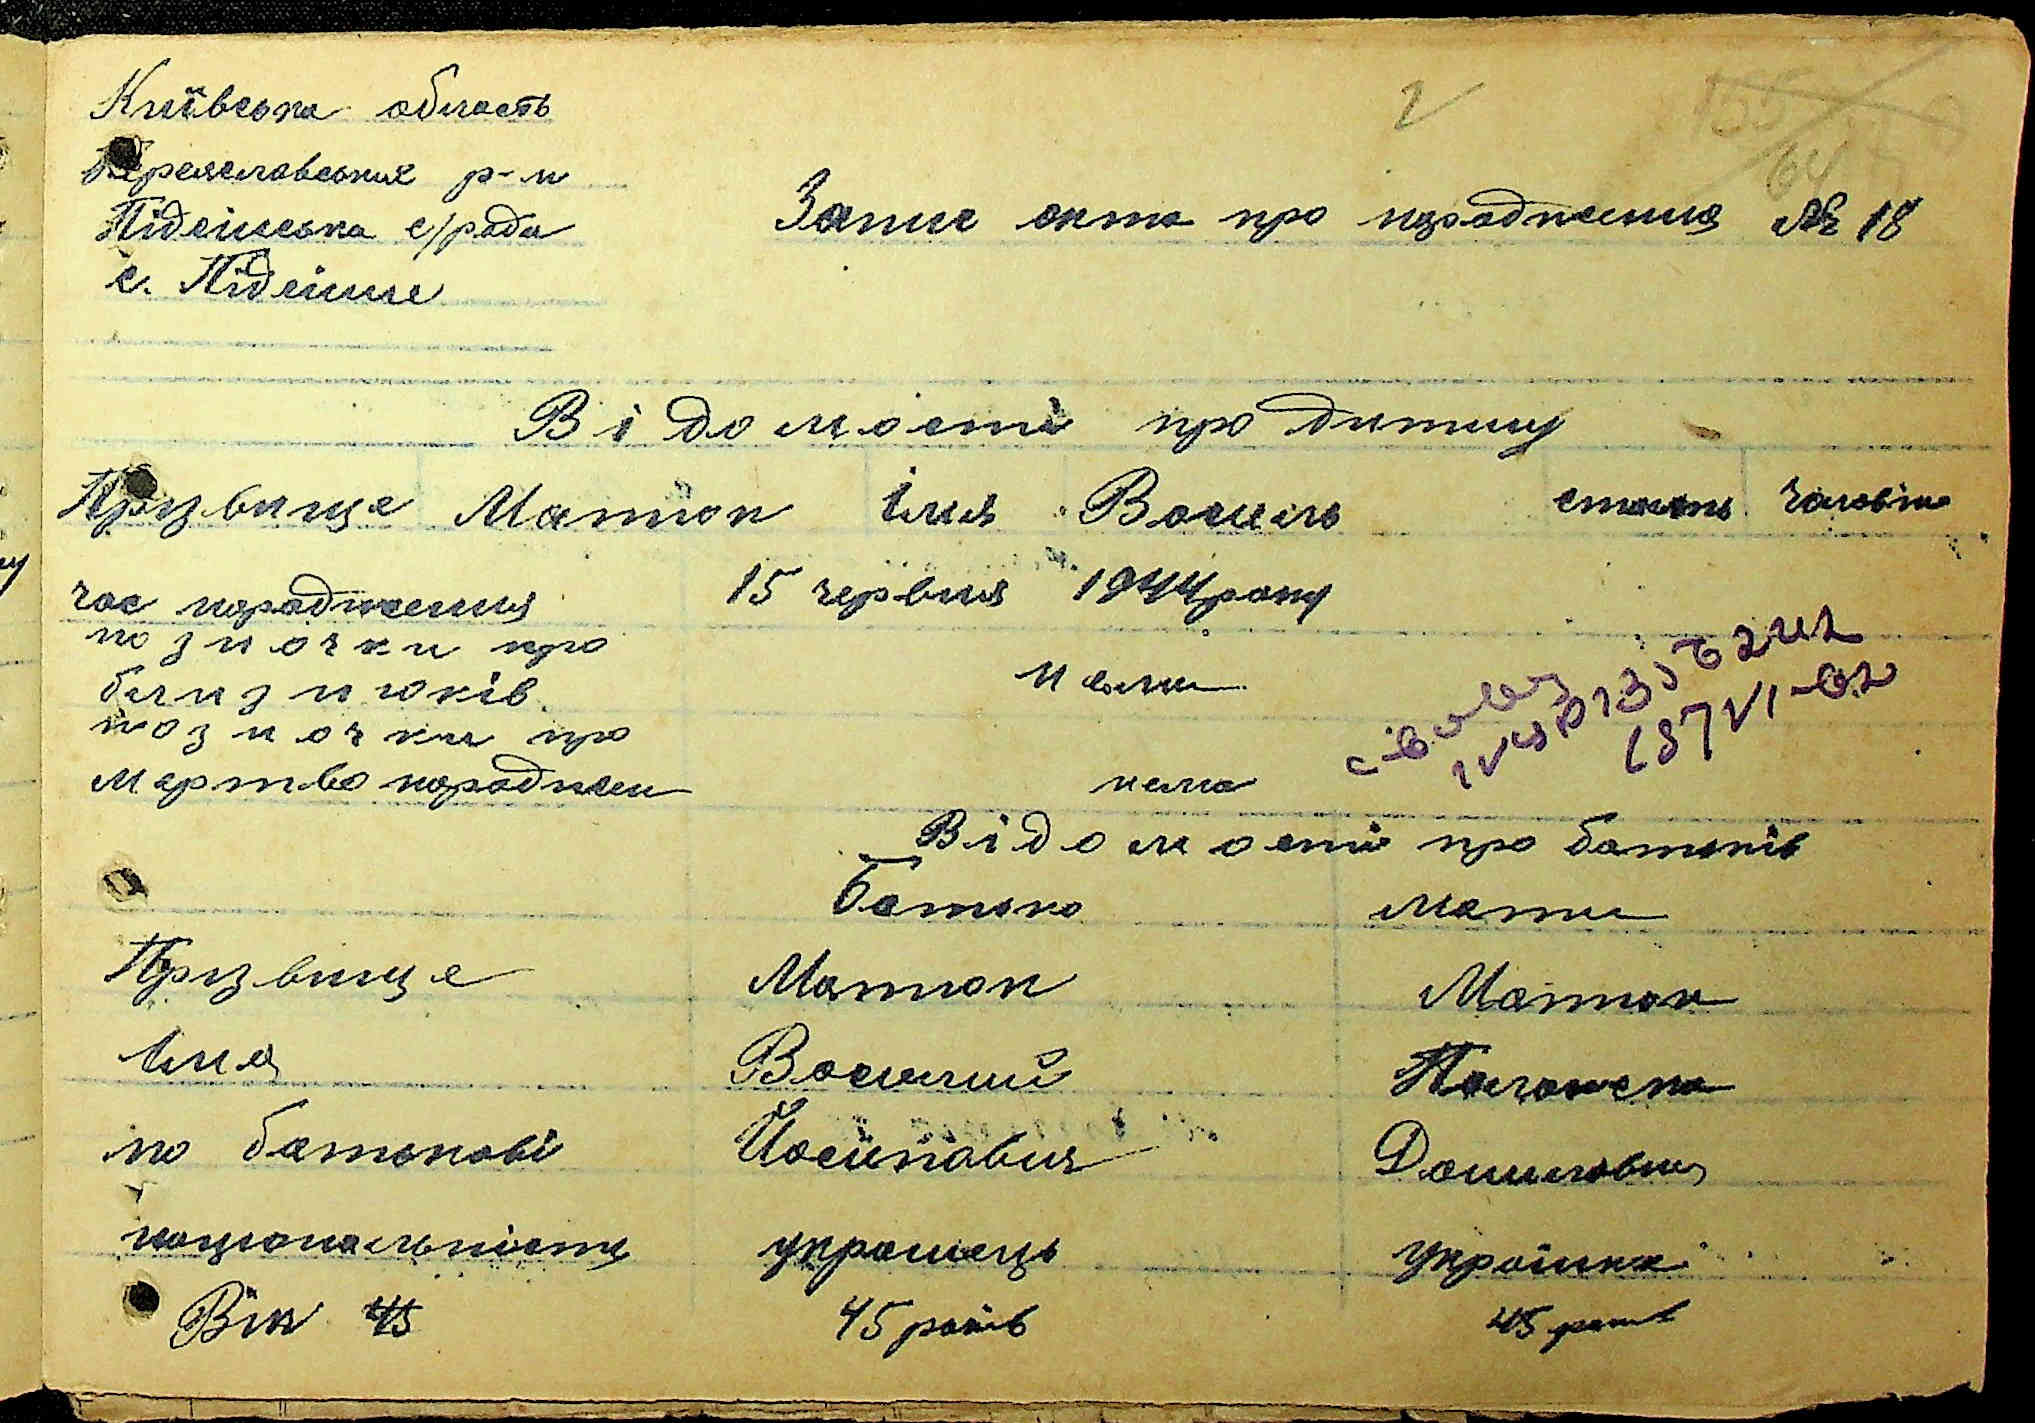 Київська область
Переяславський р-н
Підсінська с/рада
с. Підсінне
2
155
64
Запис акта про народження № 18
Відомості про дитину
Прізвище Матюк імя Василь стать чоловіч
час народження 15 червня 1944 року
позначки про
близнюків нема
позначки про
мертвонароджен нема
Відомості про батьків
Батько мати
Прізвище Матюк Матюк
імя Василий Палажка
по батькові Йосипович Даниловна
національність українець українка
Вік 45 45 років 45 років